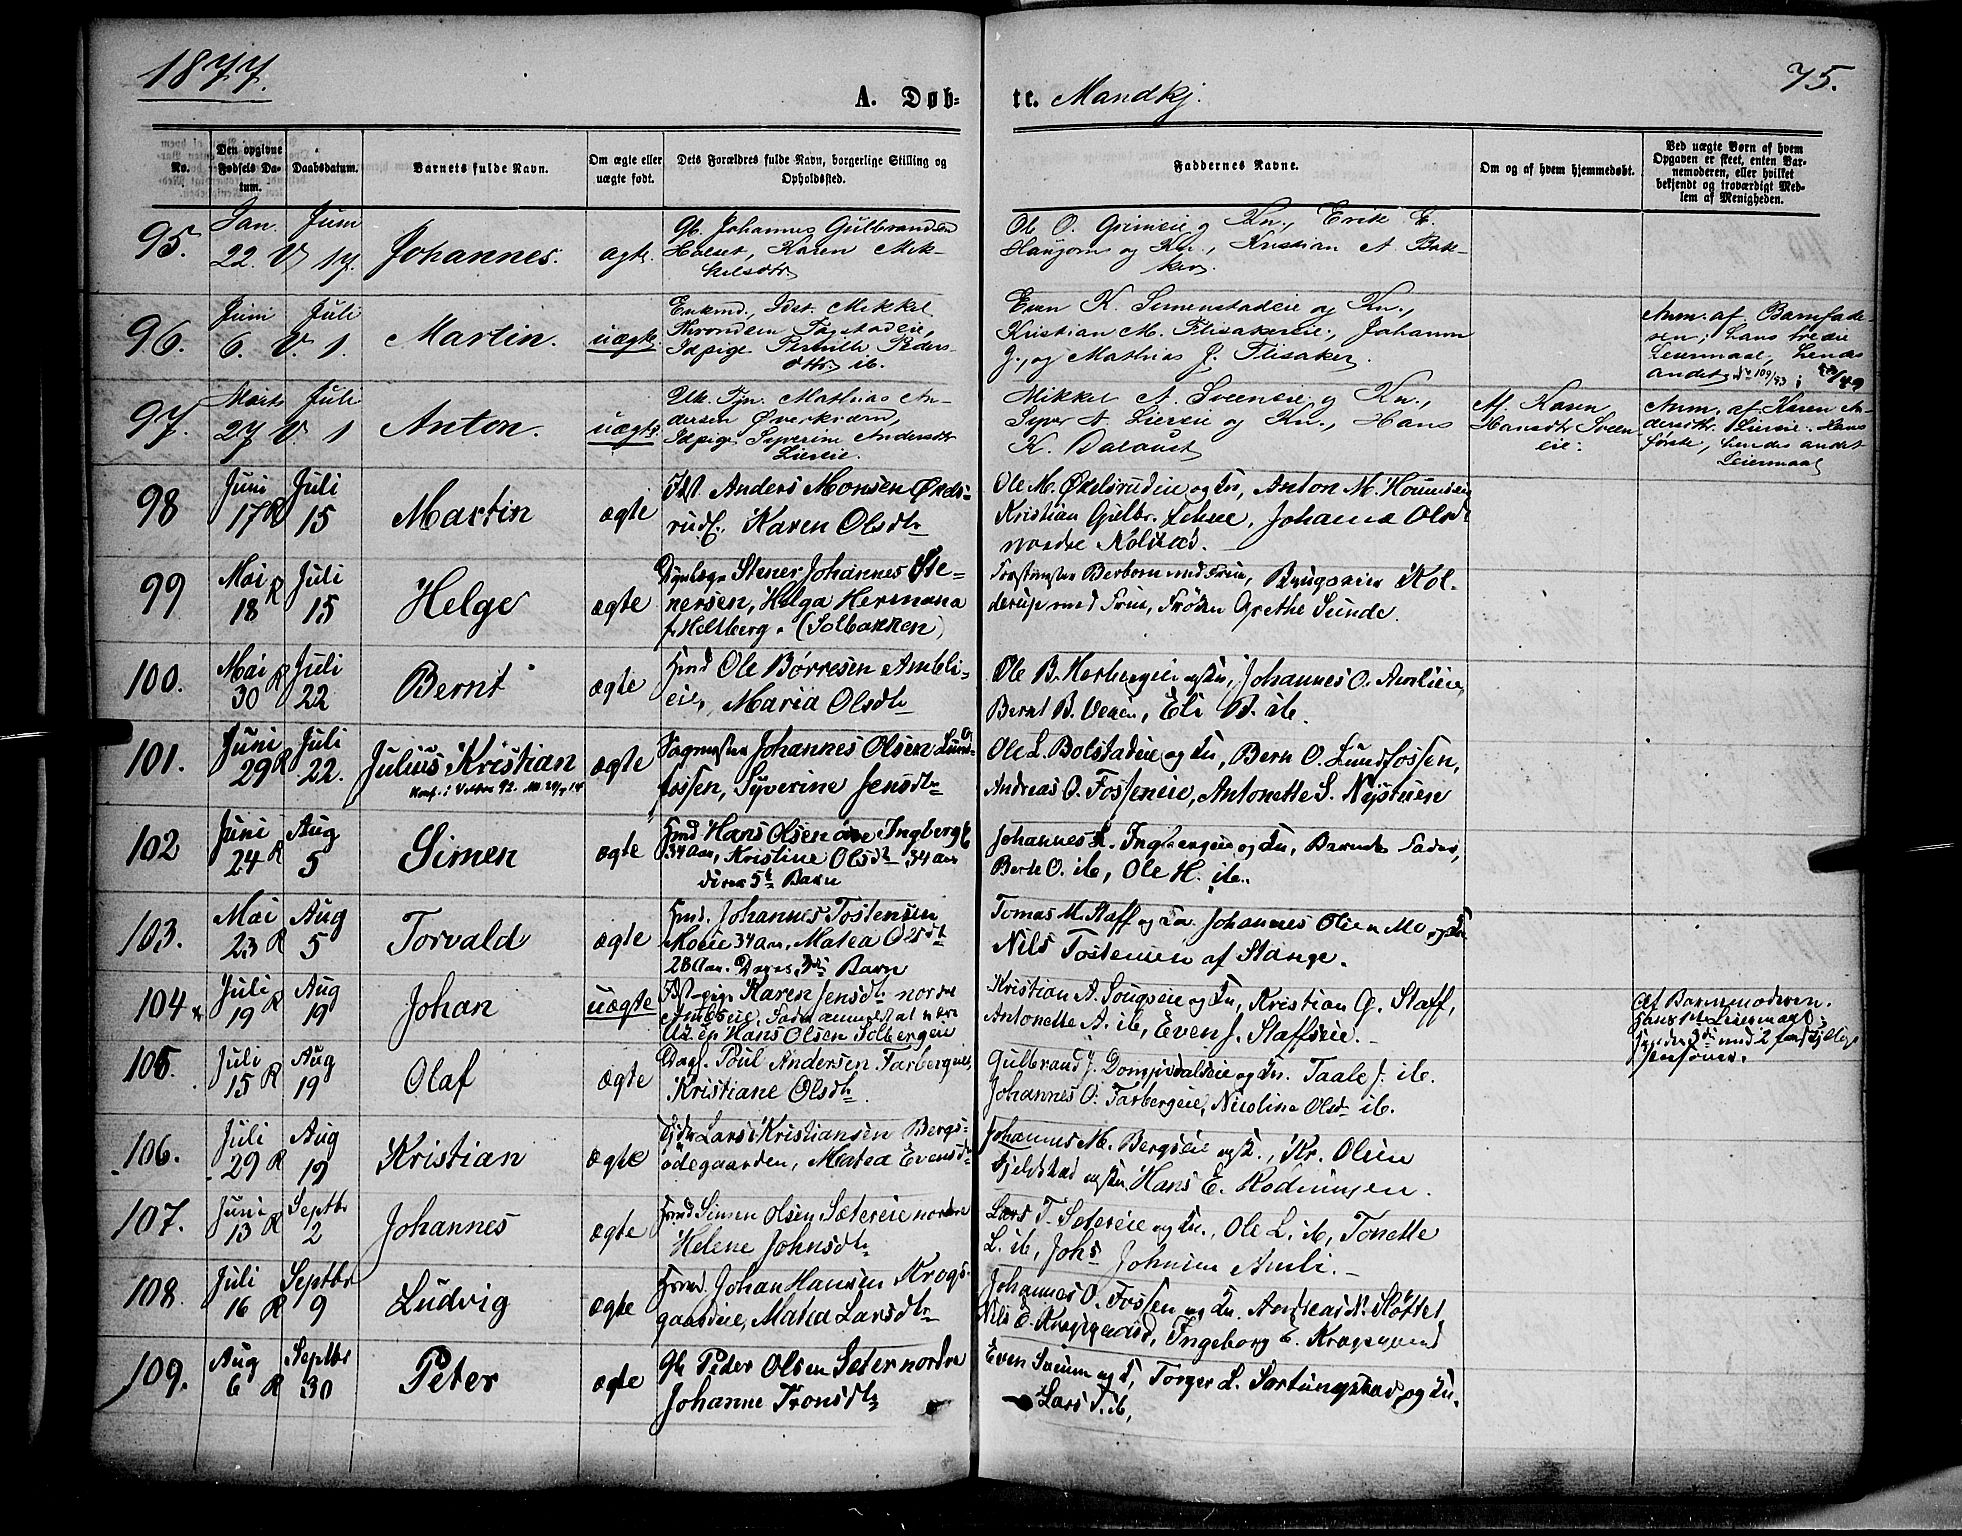 1877.
75.
A. Døb-
te. Mandkj.
No.
Den opgivne Fødsels Datum.
Daabsdatum.
Barnets fulde Navn.
Om ægte eller uægte født.
Dets Forældres fulde Navn, borgerlige Stilling og Opholdssted.
Faddernes Navne.
Om og af hvem hjemmedøbt.
Ved uægte Børn af hvem Opgaven er skeet, enten Barnemoderen, eller hvilket bekjendt og troværdigt Medlem af Menigheden.
95.
Jan. 22. V
Juni 17.
Johannes.
ægte.
Gb. Johannes Gulbrandsen
Hulset, Karen Mik-
kelsdtr
Ole O. Grimeie og Kn., Erik E.
Haugom og Kn., Kristian A. Bak-
ken
96.
Juni 6. V.
Juli 1.
Martin.
uægte.
Enkmd., Idst. Mikkel
Throndsen
Idpige Pernille Peders-
dttr. ib.
Even K. Simenstadeie og Kn.,
Kristian M. Flisakereie, Johannes
J., og Mathias J. Flisaker.
Anm. af Barnefade-
ren; hans tredie
Leiermaal, hendes
andet
97.
Marts 27 V
Juli 1
Anton.
uægte
Mathias An-
dersen Øverkvern,
Idpige Syverine Andersdtr
Liereie.
Mikkel A. Sveeneie og Kn.,
Syver A. Liereie og Kn., Hans
K. Dalaust
Af Karen
Hansdtr Sveen
eie.
Anm. af Karen An-
dersdtr. Liereie. Hans
første, hendes andet
Leiermaal
98
Juni 17 R
Juli 15
Martin
ægte
Idst Anders Monsen Økels-
rud. Karen Olsdtr
Ole M. Økelsrudeie og Kn, Anton M.
Kristian Gulbr. Johanna Olsdtr
nordre Kolstad.
99
Mai 18 R
Juli 15
Helge
ægte
Stener Johannes Ste-
nersen, Helga Hermana
f. Heltberg. (Solbakken)
Forstmester Berborn med Frue, Brugseier Kol-
derup med Frue, Frøken Grethe Sunde.
100.
Mai 30 R
Juli 22
Bernt
ægte
Hmd Ole Børresen Amlie-
eie, Maria Olsdtr
Ole B. Herbergeie og Kn, Johannes O. Amlieeie,
Bernt B. Veeien, Eli B. ib.
101.
Juni 29 R
Juli 22.
Julius Kristian
Konf. i Volden 92.
ægte
Sagmester Johannes Olsen Lund-
fossen, Syverine Jensdtr
Ole L. Bolstadeie og Kn, Bern O. Lundfossen,
Andreas O. Fosseneie, Antonette S. Nystuen
102
Juni 24 R
Aug 5
Simen
ægte
Hmd Hans Olsen øvre Ingberg
34 Aar, Kristine Olsdtr 34 Aar
deres 5te Barn
Johannes L. Ingbergeie og Kn, Barnets Fader,
Berte O. ib, Ole H. ib.
103.
Mai 23 R
Aug 5
Torvald
ægte
Hmd. Johannes Tostensen
Moeie 34 Aar, Matea Olsdtr
28 Aar. Deres 3die Barn
Tomas M. Staff og Kn Johannes Olsen Mo og Kn
Nils Tostensen af Stange.
104
Juli 19 R
Aug 19
Johan
uægte
Idst pige Karen Jensdtr nordre
Amlieeie, Fader anmeldt at være
Hans Olsen Solbergeie
Kristian A. Sougseie og Kn, Kristian G. Staff,
Antonette A. ib, Even J. Staffseie.
Af Barnemoderen.
Hans 1ste Leiermaal,
hendes 3die med 2 forskjellige
Personer.
105.
Juli 15 R
Aug 19
Olaf
ægte
Dagl. Poul Andersen Farbergeie,
Kristiane Olsdtr.
Gulbrand J. Dompidaleie og Kn. Taale J. ib.
Johannes O. Farbergeie, Nicoline Olsdtr ib.
106.
Juli 29 R
Aug 19
Kristian
ægte
Lars Kristiansen Bergs-
ødegaarden, Matea Evensdtr
Johannes M. Bergseie og K., Kr. Olsen
Fjeldstad og Kn Hans E. Rodningen.
107.
Juni 13 R
Septbr 2
Johannes
ægte
Hmd Simen Olsen Sætereie nordre
Helene Johnsdtr
Lars T. Setereie og Kn., Ole L. ib, Tonette
L. ib, Johs Johnsen Amli.
108.
Juli 16 R
Septbr 9
Ludvig
ægte
Hmd. Johan Hansen Krogs-
gaardeie, Matea Larsdtr
Johannes O. Fossen og Kn. Andreas N. Sløttet,
Nils E. Krogsgaard, Ingeborg E. Krogsgaard
109.
Aug 6 R
Septbr 30
Peter
ægte
Gb Peder Olsen Sæter nordre
Johanne Tronsdtr
Even Sveum og K, Torger L. Sørlungstad og Kn.
Lars T. ib,